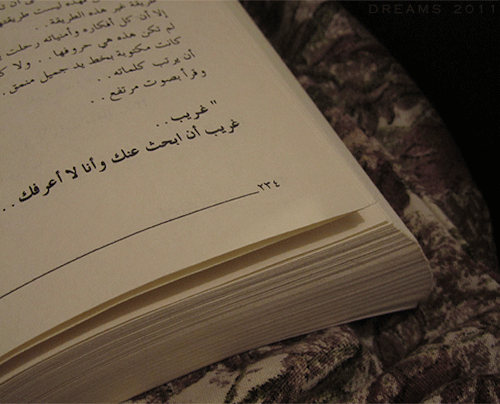 DREAMS 2011
غير هذه الطريقة..
إلا أن كل أفكاره وأمنياته رحلت
لم تكن هذه هي حروفها.. ولا
كانت مكتوبة بخط يد جميل منمق.
أن يرتب كلماته..
وقرأ بصوت مرتفع..
"غريب..
غريب أن ابحث عنك وأنا لا أعرفك..
٢٣٤